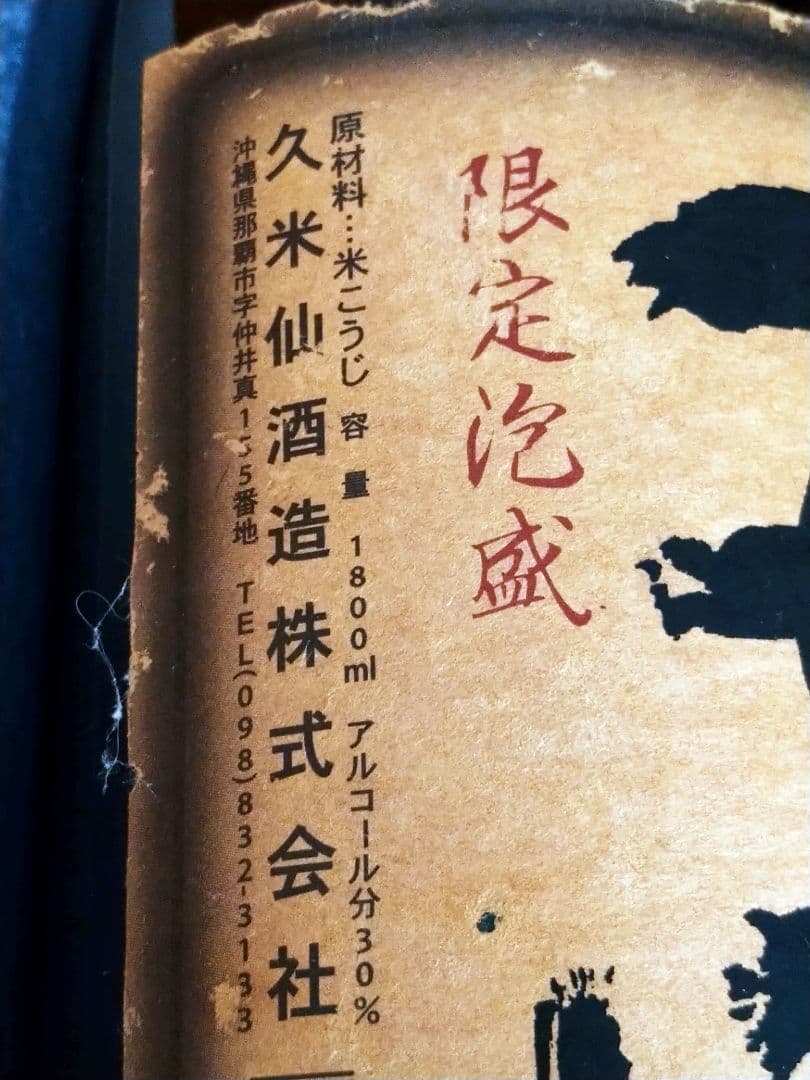 限定泡盛
原材料…米こうじ 容量 1800ml アルコール分30%
久米仙酒造株式会社
沖縄県那覇市字仲井真155番地 TEL(098)832-3133